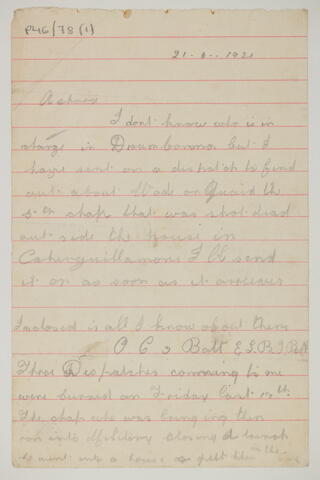 P46/78(1)
1921
I dont know who is in
charge in Drumbanna but I
have sent on a dispatch to find
out about Wade or Quaid the
5th chap that was shot dead
out side the house in
Caherguillamore I'll send
it on as soon as it
Inclosed is all I know about them
O C 3 Batt E.L.B.
Three Dispatches comming to me
were burned on Friday last
The chap who was bringing them
ran into Military
he went into a house left them in the